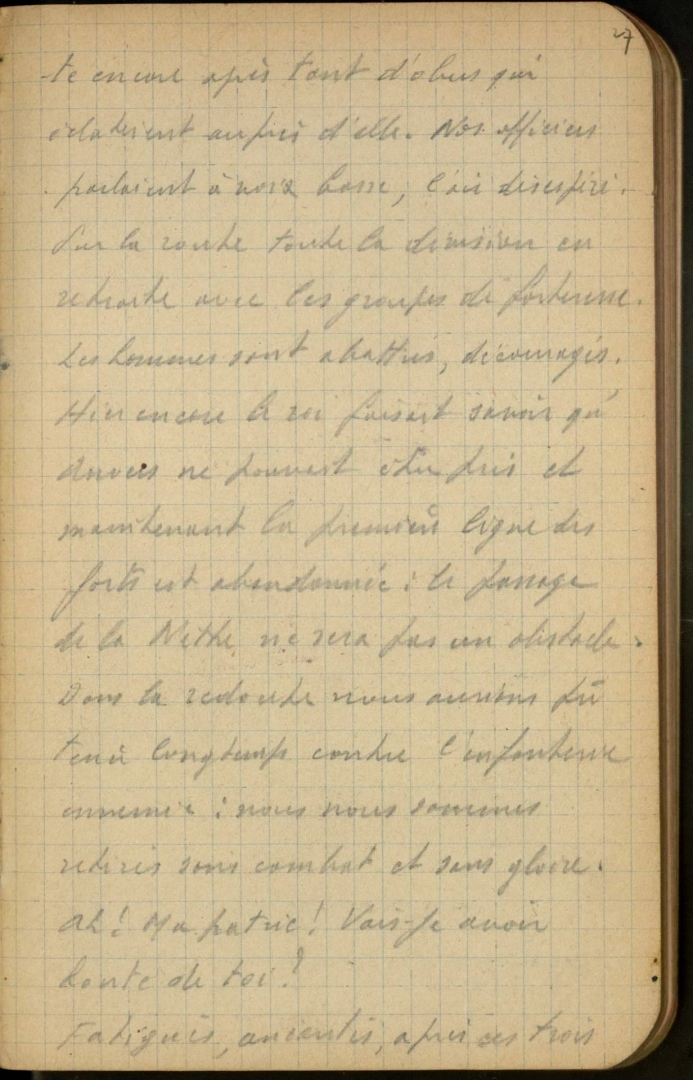 27
-te encore après tant d'obus qui
éclatèrent auprès d'elle. Nos officiers
parlaient à voix basse, l'air désespéré.
Sur la route toute la division en
retraite avec les groupes de forteresse.
Les hommes sont abattus, découragés.
Hier encore le roi faisait savoir qu'
Anvers ne pouvait être pris et
maintenant la première ligne des
forts est abandonnée : le passage
de la Nèthe ne sera pas un obstacle.
Dans la redoute nous aurions pû
tenir longtemps contre l'infanterie
ennemie : nous nous sommes
retirés sans combat et sans gloire.
Ah! Ma patrie! Vais-je avoir
honte de toi?
Fatigués, anéantis, après ces trois